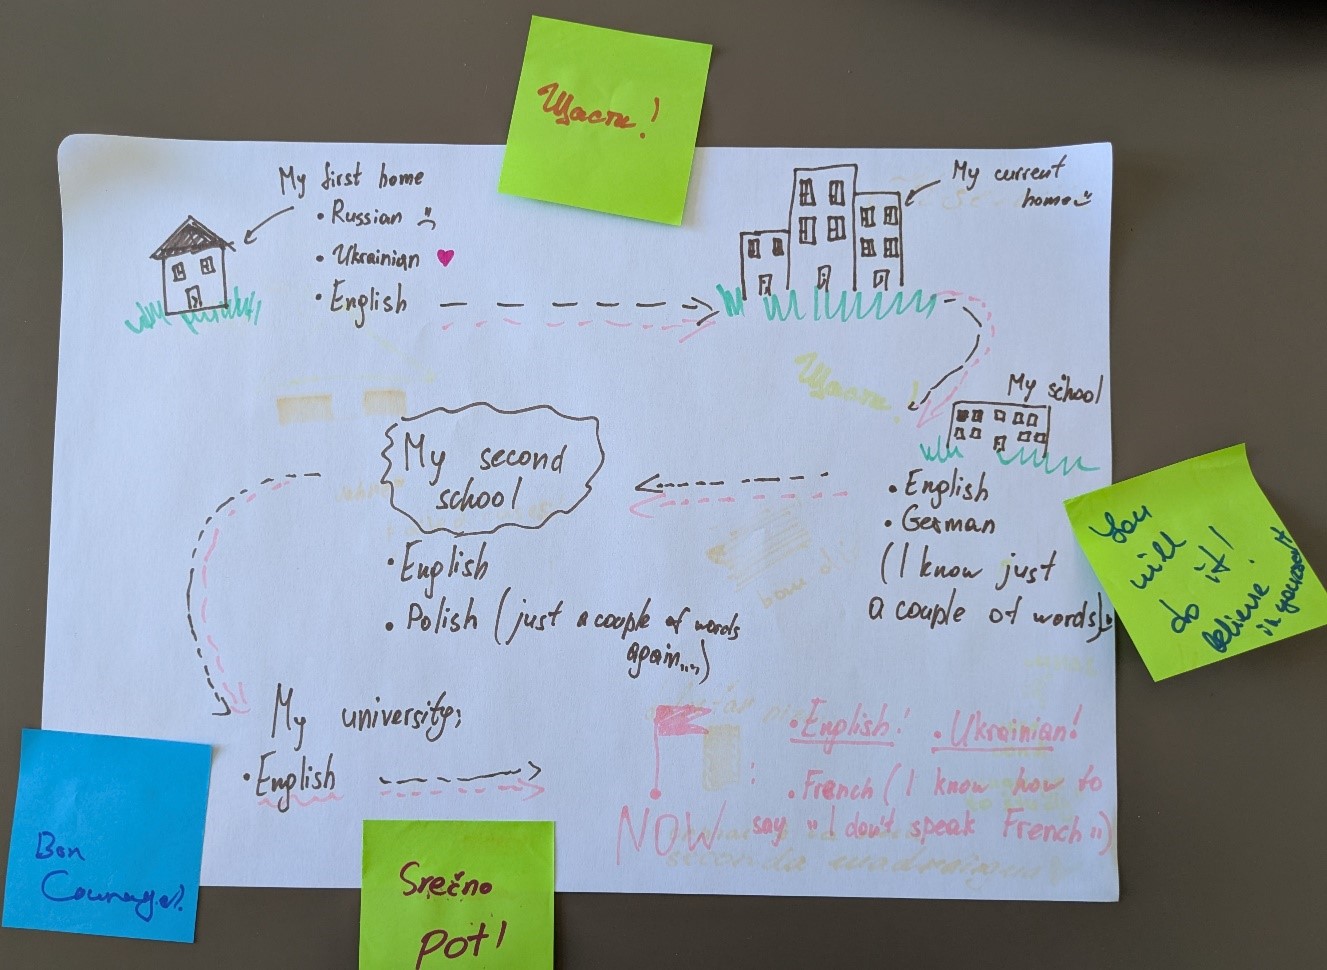 Щасти!
My first home
• Russian
• Ukrainian
• English
My current
home
Щасти!
My school
• English
• German
(I know just
a couple of words)
My second
school
• English
• Polish (just a couple of words
again...)
My university:
• English
NOW :
• English! • Ukrainian!
• French (I know how to
say "I don't speak French")
You
will
do it!
Believe
in yourself!
Bon
Courage!
Srečno
pot!